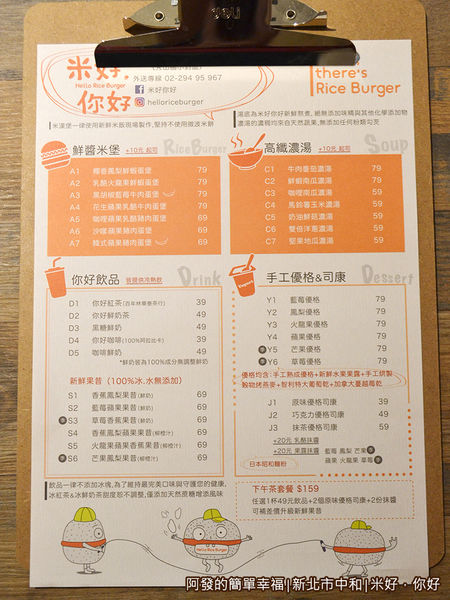 deli
米好.
Hello Rice Burger
你好
外送專線 02-294 95 967
米好你好
helloriceburger
there's
Rice Burger
米漢堡一律使用新鮮米飯現場製作,堅持不使用微波米餅
湯底為米好你好新鮮熬煮,絕無添加味精與其他化學添加物
濃湯的濃稠均來自天然蔬果,無添加任何粉類勾芡
鮮醬米堡 +10元 起司
Rice Burger
A1 檸香鳳梨鮮蝦蛋堡 79
A2 乳酪火龍果鮮蝦蛋堡 79
A3 黑胡椒藍莓牛肉蛋堡 79
A4 花生蘋果乳酪牛肉蛋堡 79
A5 咖哩蘋果乳酪豬肉蛋堡 69
A6 沙嗲蘋果豬肉蛋堡 69
A7 韓式蘋果豬肉蛋堡 69
高纖濃湯 +10元 起司
Soup
C1 牛肉番茄濃湯 79
C2 鮮蝦南瓜濃湯 79
C3 咖哩南瓜濃湯 59
C4 馬鈴薯玉米濃湯 59
C5 奶油鮮菇濃湯 59
C6 雙倍洋蔥濃湯 59
C7 堅果地瓜濃湯 59
你好飲品 皆提供冷熱飲
Drink
D1 你好紅茶(百年林華泰茶行) 39
D2 你好鮮奶茶 49
D3 黑糖鮮奶 49
D4 你好咖啡(100%阿拉比卡) 39
D5 咖啡鮮奶 49
*鮮奶皆為100%成分無調整鮮奶
新鮮果昔 (100%冰.水無添加)
S1 香蕉鳳梨果昔(鮮奶) 69
S2 藍莓蘋果果昔(鮮奶) 69
季 S3 草莓香蕉果昔(鮮奶) 69
S4 香蕉鳳梨蘋果果昔(柳橙汁) 69
S5 火龍果蘋果香蕉果昔(柳橙汁) 69
季 S6 芒果鳳梨果昔(柳橙汁) 69
手工優格&司康
Dessert
Yogurt
Y1 藍莓優格 79
Y2 鳳梨優格 79
Y3 火龍果優格 79
Y4 蘋果優格 79
季 Y5 芒果優格 79
季 Y6 草莓優格 79
優格均含:手工熟成優格+新鮮水果果露+手工烘製
穀物烤燕麥+智利特大葡萄乾+加拿大蔓越莓乾
J1 原味優格司康 39
J2 巧克力優格司康 49
J3 抹茶優格司康 59
+20元 乳酪抹醬
+20元 果露抹醬 藍莓 鳳梨 芒果 季
蘋果 火龍果 草莓 季
日本昭和麵粉
飲品一律不添加冰塊,為了維持最完美口味與守護您的健康,
冰紅茶&冰鮮奶茶甜度恕不調整,僅添加天然蔗糖增添風味
下午茶套餐 $159
任選1杯49元飲品+2個原味優格司康+2份抹醬
可補差價升級新鮮果昔
Hello Rice Burger
阿發的簡單幸福|新北市中和|米好·你好